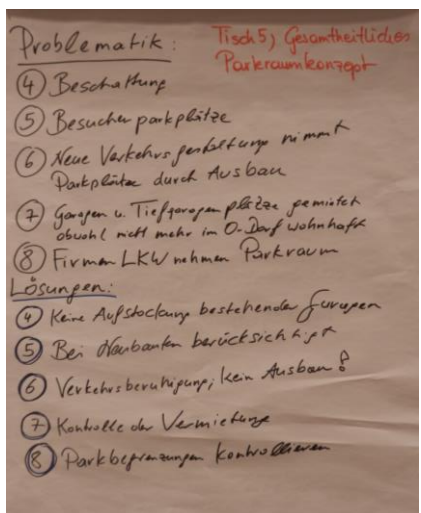 Problematik:
Tisch 5, Gesamtheitliches
Parkraumkonzept
④ Beschattung
⑤ Besucherparkplätze
⑥ Neue Verkehrsgestaltung nimmt
Parkplätze durch Ausbau
⑦ Garagen u. Tiefgaragenplätze gemietet
obwohl nicht mehr im O-Dorf wohnhaft
⑧ Firmen LKW nehmen Parkraum
Lösungen:
④ Keine Aufstockung bestehender Garagen
⑤ Bei Neubauten berücksichtigt
⑥ Verkehrsberuhigung, kein Ausbau!
⑦ Kontrolle der Vermietung
⑧ Parkbegrenzungen kontrollieren